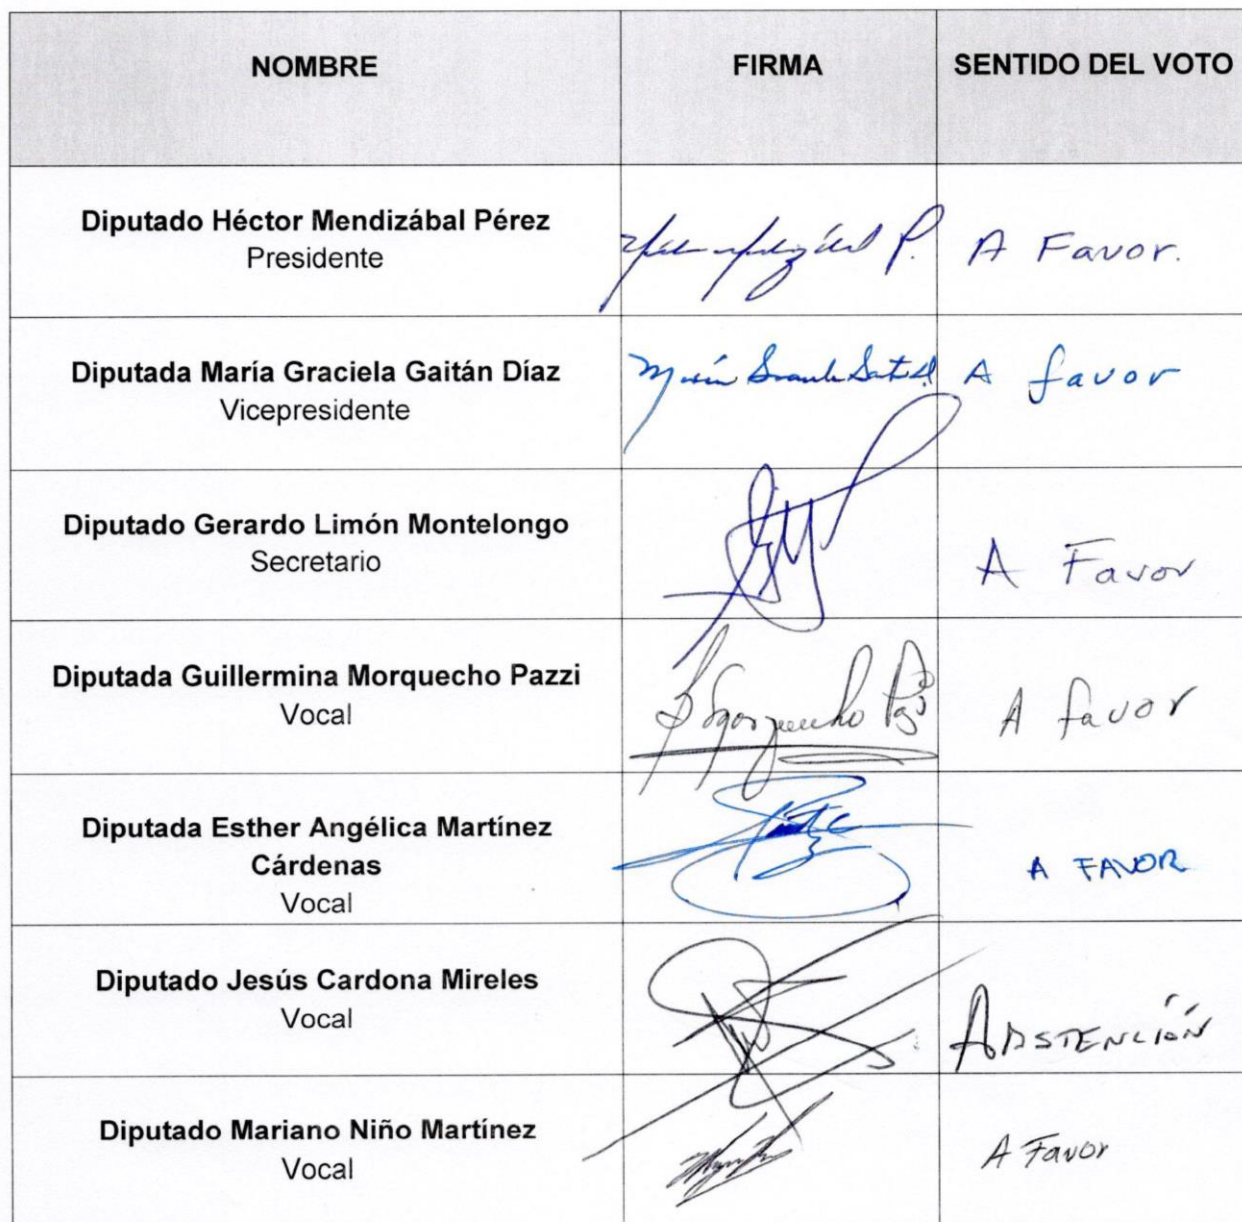 NOMBRE FIRMA SENTIDO DEL VOTO
Diputado Héctor Mendizábal Pérez
Presidente
A Favor.
Diputada María Graciela Gaitán Díaz
Vicepresidente
A favor
Diputado Gerardo Limón Montelongo
Secretario
A Favor
Diputada Guillermina Morquecho Pazzi
Vocal
A favor
Diputada Esther Angélica Martínez
Cárdenas
Vocal
A FAVOR
Diputado Jesús Cardona Mireles
Vocal
ABSTENCIÓN
Diputado Mariano Niño Martínez
Vocal
A Favor